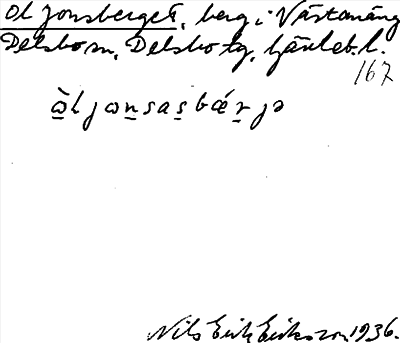 Ol Jonsberget, berg i Västanäng
Delsbo sn, Delsbo tg, Gävleb. l.
167
ɷ̀l jɷnsasbǽrjə
Nils Erik Eriksson 1936.